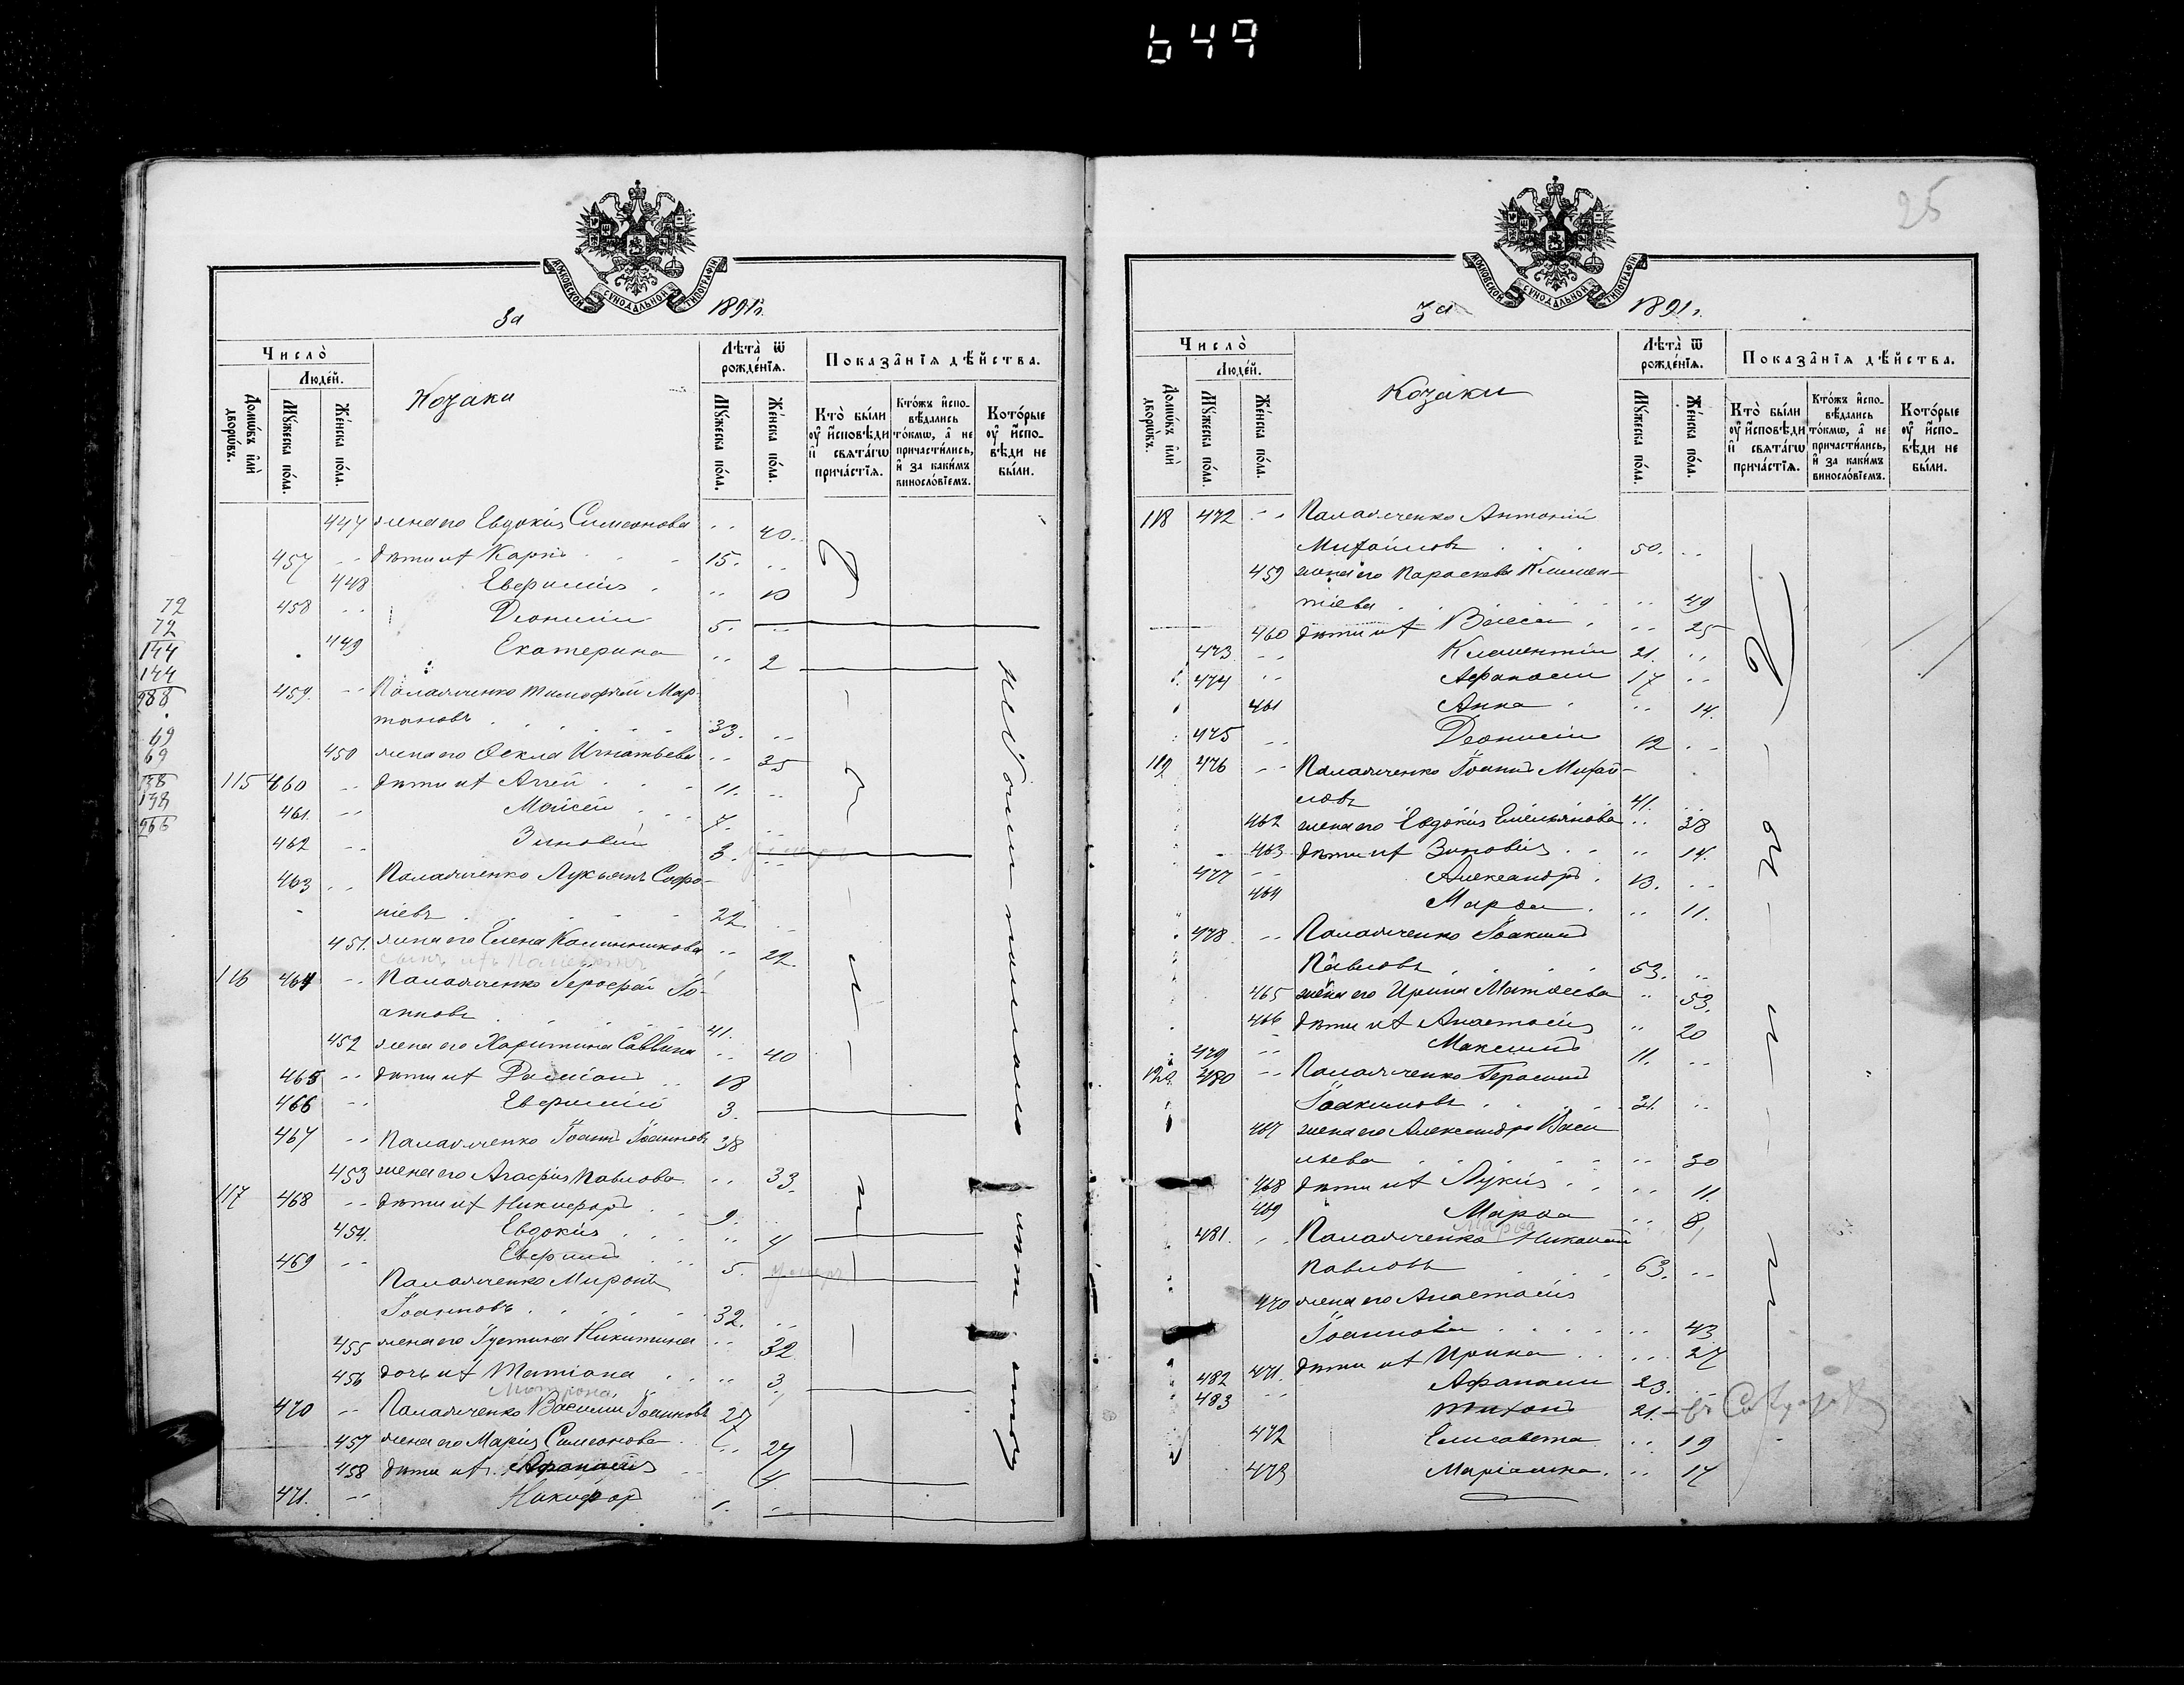 649
МОСКОВСКОЙ СѴНОДАЛЬНОЙ ТИПОГРАФІИ
За 1891 г.
Число̀
Людей.
Домѡвъ илѝ дворѡвъ.
Мꙋжеска пола.
Женска пола.
Козаки
Лѣта̀ ѿ рожденїѧ.
Мꙋжеска пола.
Женска пола.
Показанїѧ дѣйства.
Кто̀ были ᲂу исповѣди и свѧтагѡ причастїѧ.
Ктожъ исповѣдались токмѡ, а не причастились, и за какимъ винословїемъ.
Которые ᲂу исповѣди не были.
447 жена его Евдокія Симеонова 40.
457 дѣти ихъ Карпъ 15.
448 Евфимія 10
458 Діонисій 5.
449 Екатерина 2
459. Паламаченко Тимофей Мар-
тиновъ 33.
450 жена его Ѳекла Игнатьева 35
115 460 дѣти ихъ Аггей 11.
461. Моисей 7.
462 Зиновій 3. умеръ
463 Паламаченко Лукьянъ Софро-
ніевъ 22.
451. жена его Елена Калинникова 22.
сынъ ихъ
116 464 Паламаченко Іерофей Іо-
анновъ 41.
452 жена его Харитина Саввина 40
465 дѣти ихъ Даміанъ 18
466 Евфимій 3.
467 Паламаченко Іоаннъ Іоанновъ 38
453 жена его Агафія Павлова 33.
117 468 дѣти ихъ Никифоръ 9.
454. Евдокія 4
469 Евфимій 5. умеръ
Паламаченко Миронъ
Іоанновъ 32.
455 жена его Іустина Никитина 32
456 дочь ихъ Татіана 3.
Матрона
470 Паламаченко Василий Іоанновъ 27
457 жена его Марія Симеонова 27
458 дѣти ихъ Афанасія 4.
471. Никифор 1.
72
72
144
144
288
69
69
138
138
266
25
МОСКОВСКОЙ СѴНОДАЛЬНОЙ ТИПОГРАФІИ
За 1891 г.
Число̀
Людей.
Домѡвъ илѝ дворѡвъ.
Мꙋжеска пола.
Женска пола.
Козаки
Лѣта̀ ѿ рожденїѧ.
Мꙋжеска пола.
Женска пола.
Показанїѧ дѣйства.
Кто̀ были ᲂу исповѣди и свѧтагѡ причастїѧ.
Ктожъ исповѣдались токмѡ, а не причастились, и за какимъ винословїемъ.
Которые ᲂу исповѣди не были.
118 472 Паламаченко Антоній
Михайловъ 50.
459 жена его Параскева Климен-
тіева 49
460 дѣти ихъ Васса 25
473 Климентій 21.
474 Афанасій 17
461 Анна 14.
475 Діонисій 12
119 476 Паламаченко Іоаннъ Михай-
ловъ 41.
462 жена его Евдокія Емельянова 38
463 дѣти ихъ Зиновія 14.
477 Александръ 13.
464 Марѳа 11.
478 Паламаченко Іоакимъ
Павловъ 53.
465 жена его Ирина Матѳеева 53.
466 дѣти ихъ Анастасія 20
479 Максимъ 11.
120 480 Паламаченко Герасимъ
Іоакимовъ 31.
467 жена его Александра Васи
льева 30
468 дѣти ихъ Лукія 11.
469 Марѳа 8,
Марѳа
481. Паламаченко Николай
Павловъ 63.
470 жена его Анастасія
Іоаннова 43
471. дѣти ихъ Ирина 27
482 Афанасій 23.
483 Тихонъ 21.
472 Елисавета 19
473 Маріамна 17